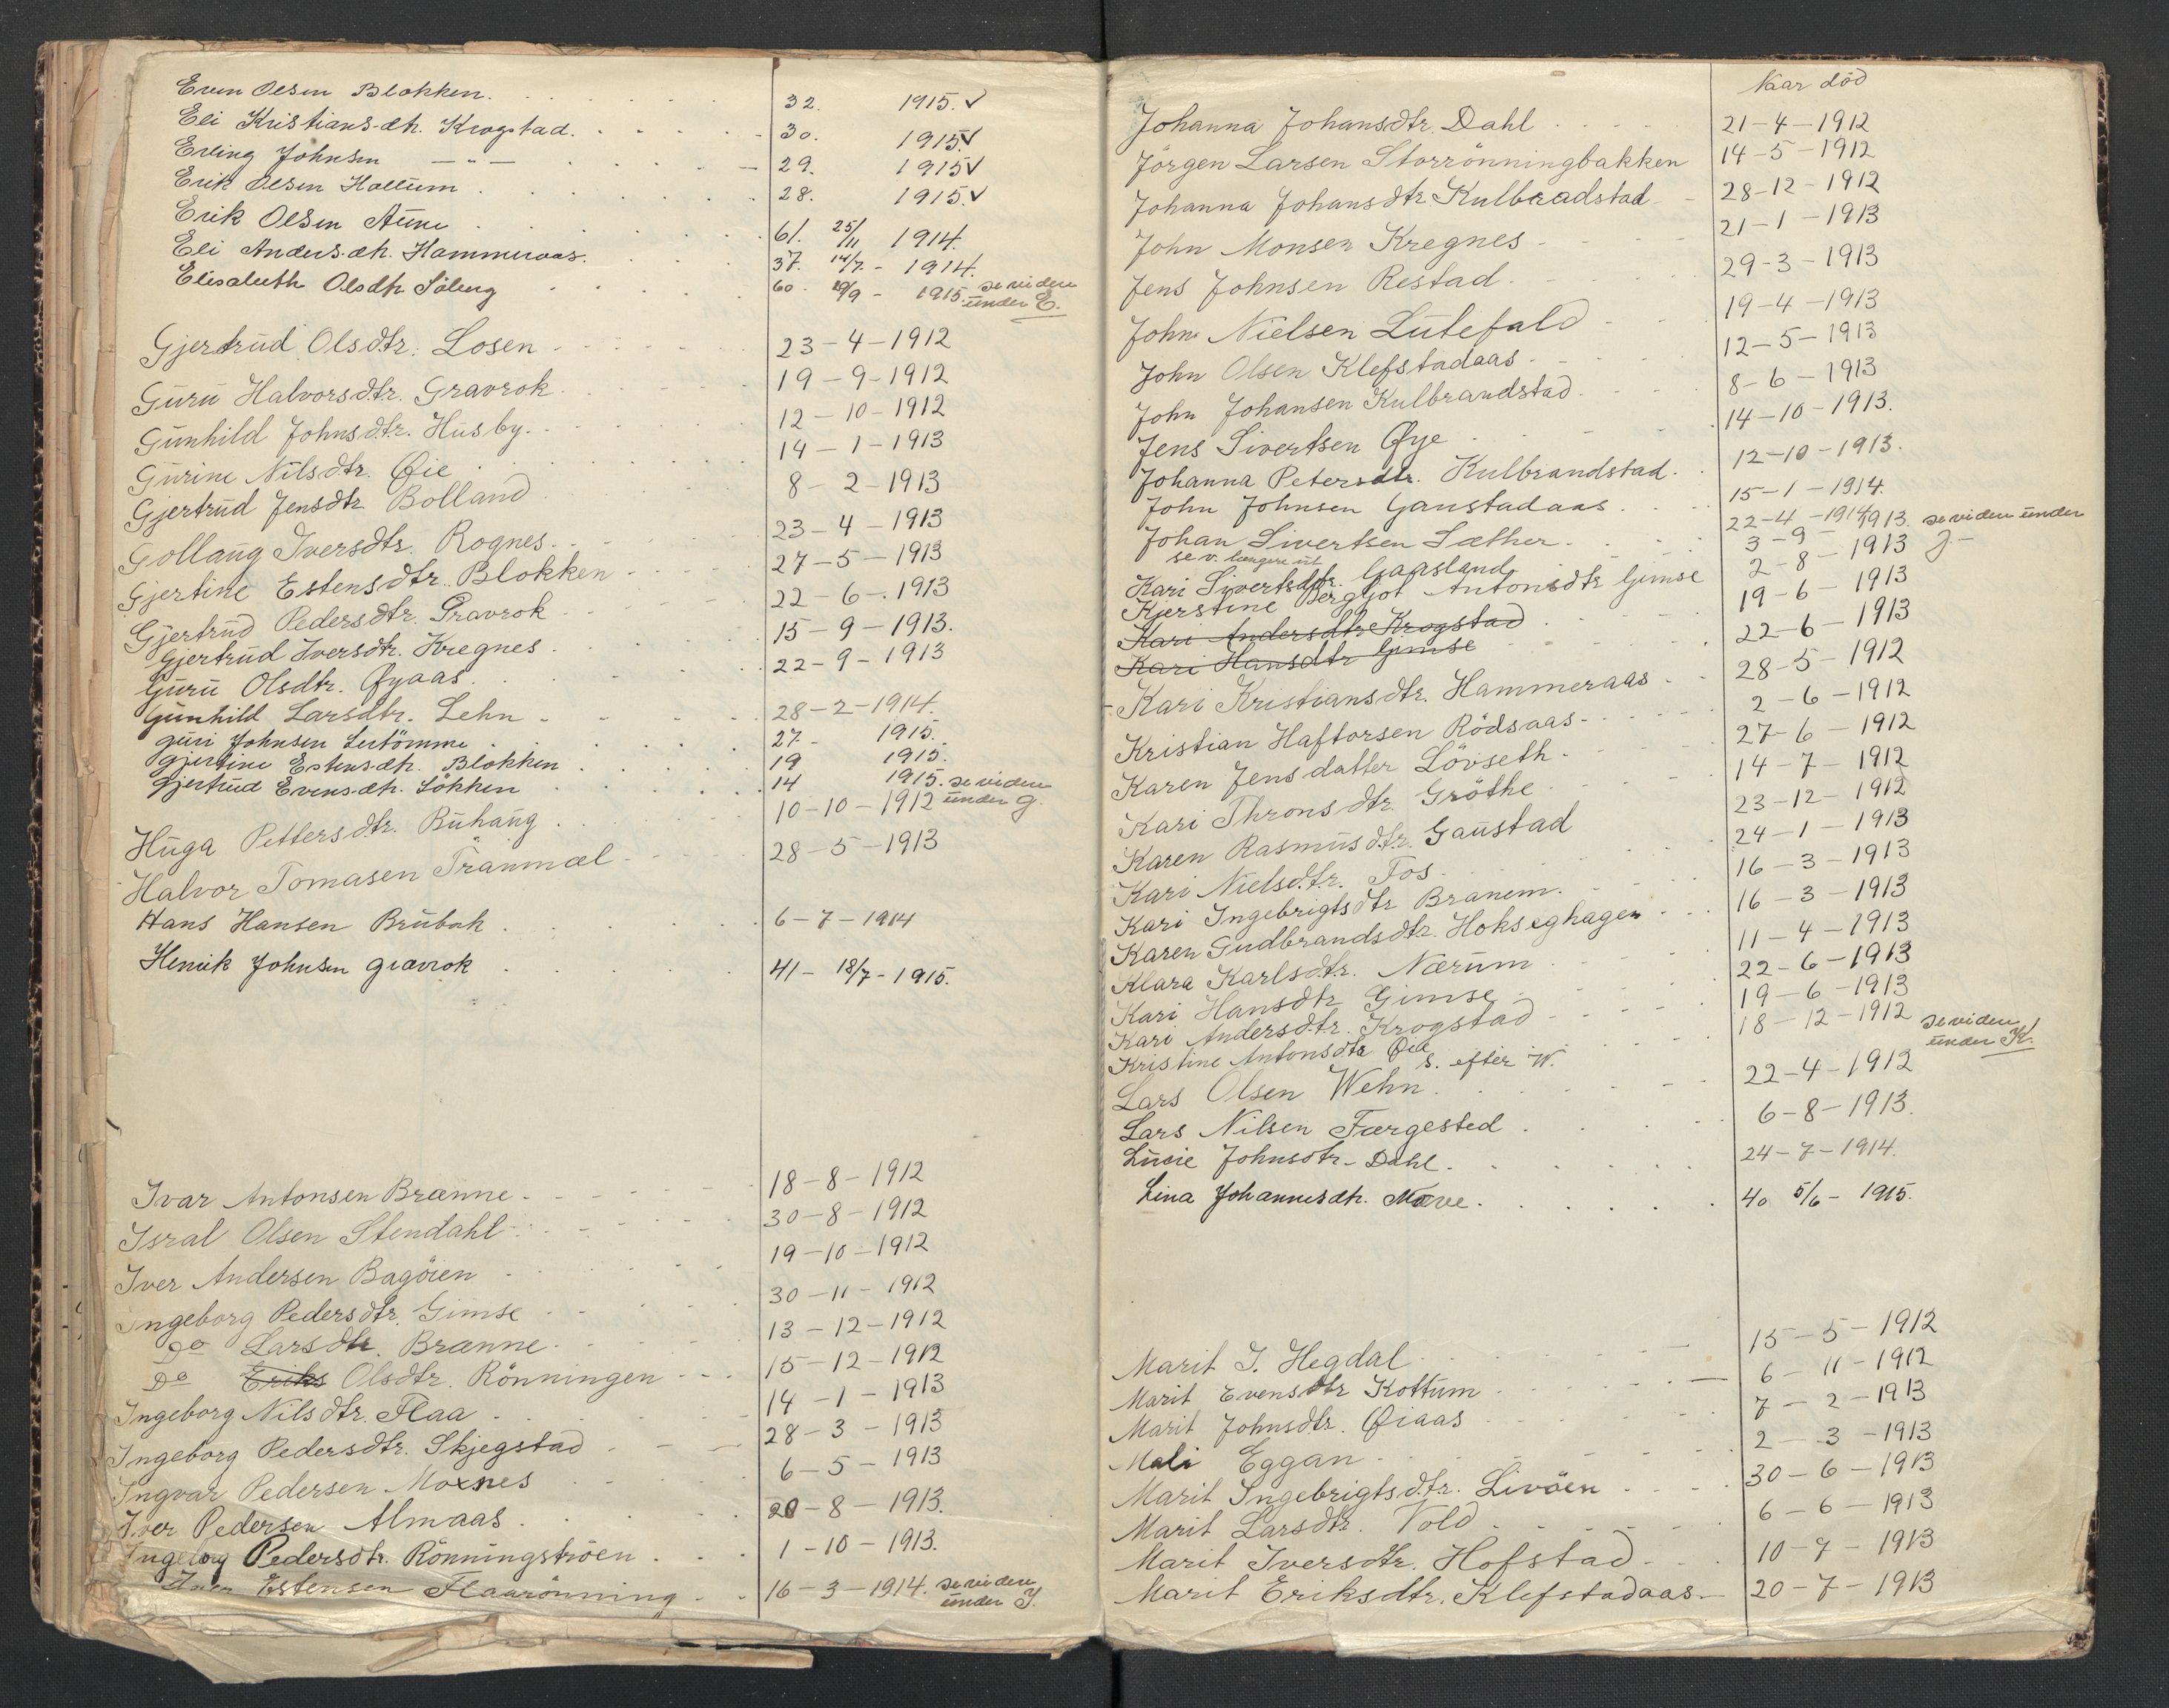 Even Olsen Blokken. 32. 1915. ✓
Eli Kristians.dtr. Krogstad. 30. 1915 ✓
Erling Johnsen —"— 29. 1915 ✓
Erik Olsen Hollum 28. 1915. ✓
Erik Olsen Aune 61. 25/11 1914.
Eli Anders.dtr. Hammeraas. 37. 14/7 - 1914.
Elisabeth Olsdtr. Söberg 60. 29/9 - 1915. se viden under E.
Gjertrud Olsdtr. Losen 23-4-1912
Guru Halvorsdtr. Gravrok 19-9-1912
Gunhild Johnsdtr. Husby. 12-10-1912
Gurine Nilsdtr. Øie 14-1-1913
Gjertrud Jensdtr Bolland 8-2-1913
Gollaug Iversdtr. Rognes. 23-4-1913
Gjertine Estensdtr. Blokken 27-5-1913
Gjertrud Pedersdtr. Gravrok 22-6-1913
Gjertrud Iversdtr. Kregnes 15-9-1913.
Guru Olsdtr. Øyaas. 22-9-1913
Gunhild Larsdtr. Lehn 28-2-1914.
Guri Johnsen 27- 1915.
Gjertine Estens.dtr. Blokken 19 1915.
Gjertrud Evens.dtr. Lökken 14 1915. se viden under G.
Huga Pettersdtr. Buhaug 10-10-1912
Halvor Tomasen Tranmæl 28-5-1913
Hans Hansen Brubak 6-7-1914
Henrik Johnsen Gravrok 41- 18/7-1915.
Ivar Antonsen Brænne 18-8-1912
Isral Olsen Stendahl 30-8-1912
Iver Andersen Bagöien 19-10-1912
Ingeborg Pedersdtr. Gimse 30-11-1912
Do Larsdtr. Brænne 13-12-1912
Do Eriks Olsdtr. Rönningen 15-12-1912
Ingeborg Nilsdtr. Flaa 14-1-1913
Ingeborg Pedersdtr. Skjegstad 28-3-1913
Ingvar Pedersen Moxnes 6-5-1913
Iver Pedersen Almaas 20-8-1913.
Ingeborg Pedersdtr. Rönningströen 1-10-1913.
Iver Estensen Flaarönning 16-3-1914. se viden under I.
Naar död
Johanna Johansdtr. Dahl 21-4-1912
Jörgen Larsen Storrönningbakken 14-5-1912
Johanna Johansdtr Kulbradstad 28-12-1912
John Monsen Kregnes 21-1-1913
Jens Johnsen Restad 29-3-1913
John Nielsen Lutefald 19-4-1913
John Olsen Klefstadaas 12-5-1913
John Johansen Kulbrandstad. 8-6-1913
Jens Sivertsen Øye 14-10-1913.
Johanna Petersdtr. Kulbrandstad. 12-10-1913.
John Johnsen Gaustadaas 15-1-1914.
Johan Sivertsen Sæther. 22-4-1914 se viden under J-
se v. længere ut
Kari Sivertsdtr. Gaasland 3-9-1913.
Kjerstine Bergljot Antonsdtr Gimse 2-8-1913
Kari Andersdtr Krogstad 19-6-1913
Kari Hansdtr Gimse 22-6-1913
Kari Kristiansdtr. Hammeraas 28-5-1912
Kristian Haftorsen Rödsaas 2-6-1912
Karen Jensdatter Lövseth 27-6-1912
Kari Thronsdtr. Gröthe 14-7-1912
Karen Rasmusdtr. Gaustad 23-12-1912
Kari Nielsdtr. Fos 24-1-1913
Kari Ingebrigtsdtr Branem. 16-3-1913
Karen Gudbrandsdtr. Hokseghagen 16-3-1913
Klara Karlsdtr. Nærum 11-4-1913
Kari Hansdtr Gimse 22-6-1913
Kari Andersdtr. Krogstad 19-6-1913
Kristine Antonsdtr Øie 18-12-1912 se viden under K.
s. efter W.
Lars Olsen Wehn 22-4-1912
Lars Nilsen Færgested 6-8-1913.
Lucie Johnsdtr. Dahl. 24-7-1914.
Lina Johannesdtr. Move. 40 5/6- 1915.
Marit J. Hegdal 15-5-1912
Marit Evensdtr Kottum 6-11-1912
Marit Johnsdtr. Øiaas 7-2-1913
Mali Eggan 2-3-1913
Marit Ingebrigtsdtr. Livöen 30-6-1913
Marit Larsdtr. Vold 6-6-1913
Marit Iversdtr. Hofstad 10-7-1913
Marit Eriksdtr. Klefstadaas 20-7-1913